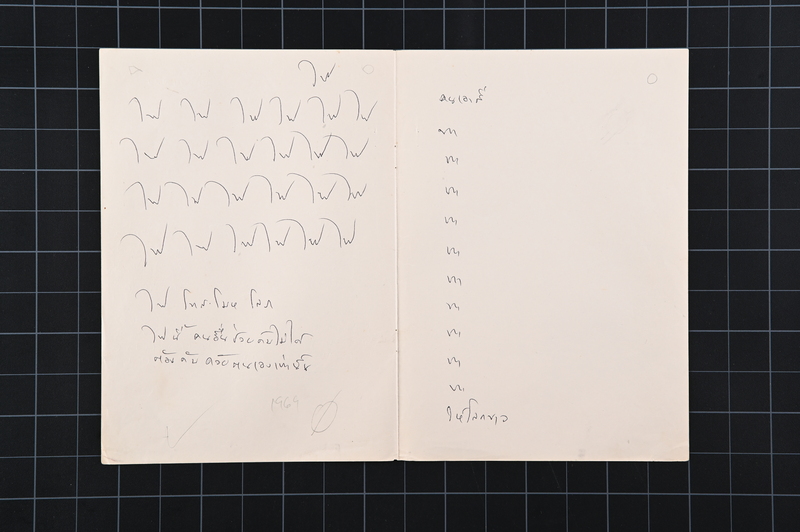 ไฟ
ไฟ ไฟ ไฟ ไฟ ไฟ ไฟ
ไฟ ไฟ ไฟ ไฟ ไฟ ไฟ
ไฟ ไฟ ไฟ ไฟ ไฟ ไฟ
ไฟ ไฟ ไฟ ไฟ ไฟ ไฟ
ไฟ โทสะ โมห โลภ
ไฟนี้ คนอื่นช่วยดับไม่ได้
ต้องดับ ด้วยตนเองเท่านั้น
1969
ทา
ทา
ทา
ทา
ทา
ทา
ทา
ทา
ทา
ทา
ให้โลกขาว